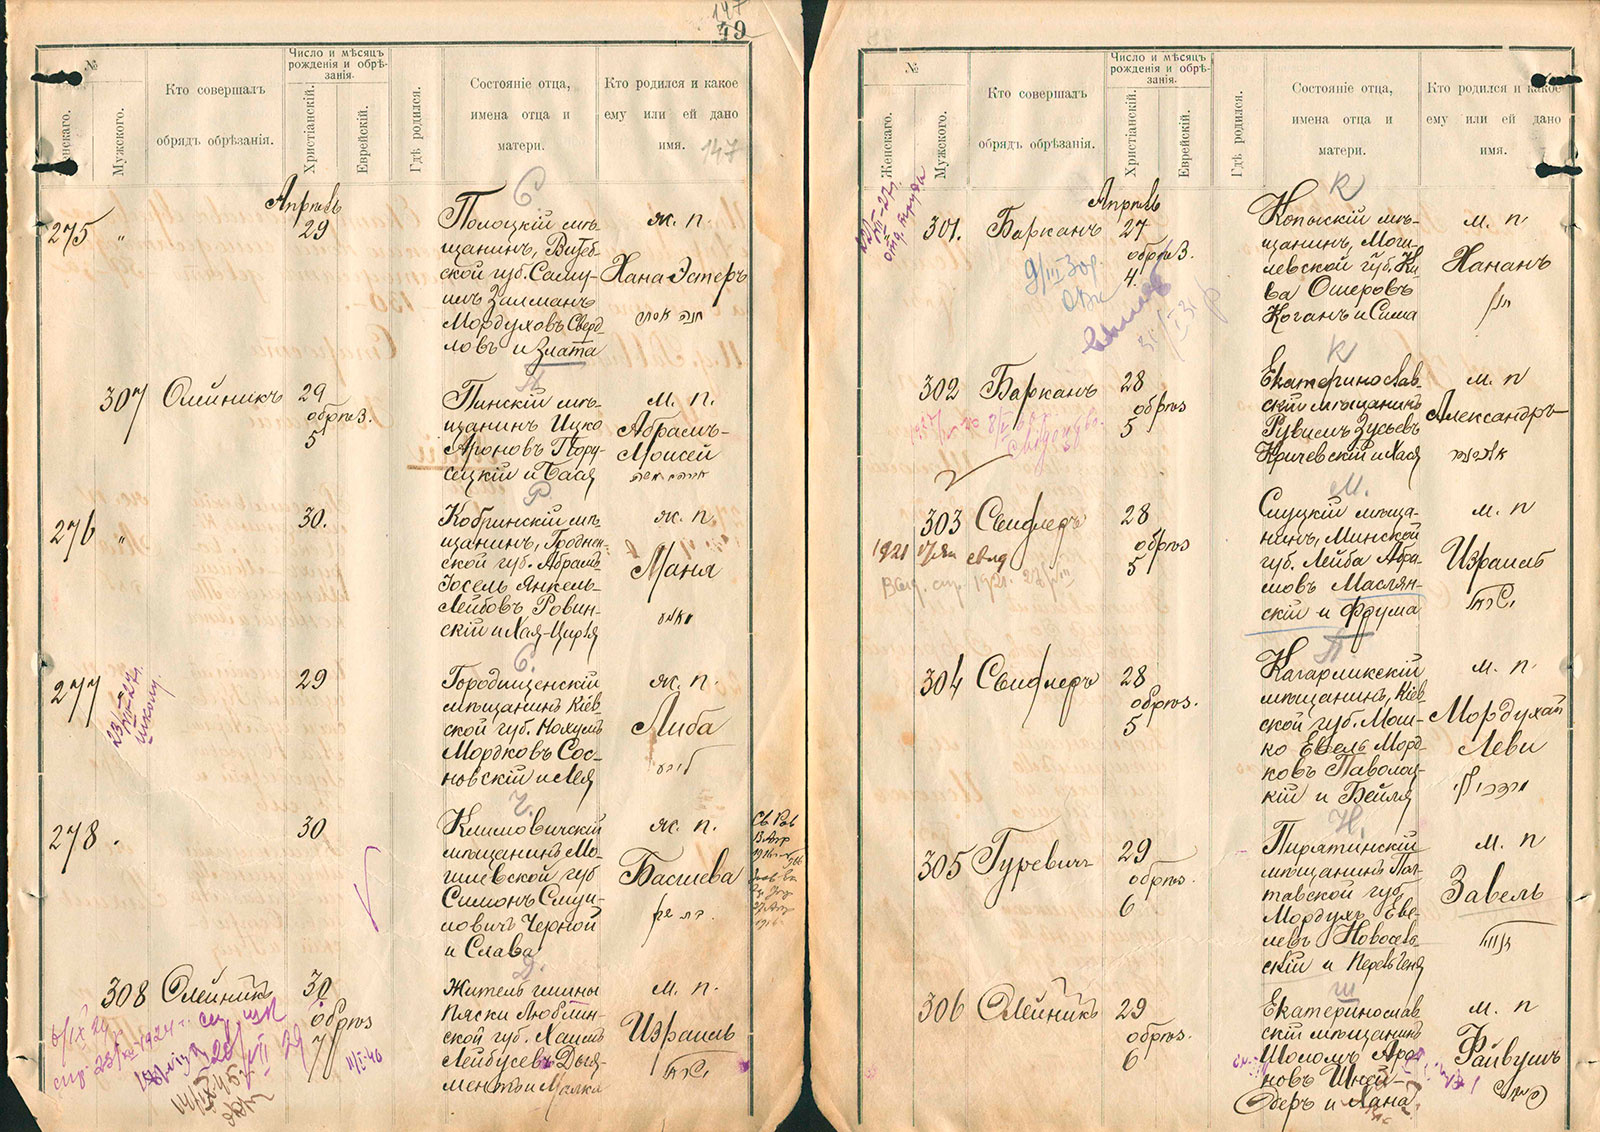 147
49
№
Женскаго.
Мужского.
Кто совершалъ
обрядъ обрѣзанія.
Число и мѣсяцъ
рожденія и обрѣ-
занія.
Христіанскій.
Еврейскій.
Гдѣ родился.
Состояніе отца,
имена отца и
матери.
Кто родился и какое
ему или ей дано
имя.
147
Апрѣль
275
"
29
С.
Полоцкій мѣ-
щанинъ, Витеб-
ской губ. Саму-
илъ Залманъ
Мордуховъ Сверд-
ловъ и Злата
ж. п.
Хана Эстеръ
חנה אסתר
307
Олейникъ
29
обрѣз.
5
Пинскій мѣ-
щанинъ Ицко
Ароновъ Пору-
сецкій и Бася
м. п.
Абрамъ-
Моисей
אברהם משה
276
"
30.
Р
Кобринскій мѣ-
щанинъ, Гроднен-
ской губ. Абрамъ
Іосель Янкель-
Лейбовъ Ровин-
скій и Хая-Цирля
ж. п.
Маня
מאניא
277
29
С.
Городищенскій
мѣщанинъ Кіев-
ской губ. Нохумъ
Мордковъ Сос-
новскій и Лея
ж. п.
Либа
ליבא
278
30
Ч.
Климовичскій
мѣщанинъ Мо-
гилевской губ
Симонъ Смуи-
ловичъ Черной
и Слава
ж. п.
Басшева
308
Олейникъ
30
обрѣз
7
Д.
Житель гмины
Пяски Люблин-
ской губ. Хаимъ
Лейбусевъ Дыа-
ментъ и Малка
м. п.
Израиль
ישראל
11/I-40
№
Женскаго.
Мужского.
Кто совершалъ
обрядъ обрѣзанія.
Число и мѣсяцъ
рожденія и обрѣ-
занія.
Христіанскій.
Еврейскій.
Гдѣ родился.
Состояніе отца,
имена отца и
матери.
Кто родился и какое
ему или ей дано
имя.
Апрѣль
301.
Барканъ
27
обрѣз.
4.
К
Копыскій мѣ-
щанинъ, Моги-
левской губ. Ки-
ва Ошеровъ
Коганъ и Сима
м. п
Хананъ
חנן
302
Барканъ
28
обрѣз
5
К
Екатеринослав-
скій мѣщанинъ
Рувимъ Зусьевъ
Кричевскій и Хася
м. п
Александръ
303
Свифлеръ
28
обрѣз
5
М.
Слуцкій мѣща-
нинъ, Минской
губ. Лейба Абра-
мовъ Маслян-
скій и Фрума
м. п
Израиль
ישראל
304
Свифлеръ
28
обрѣз.
5
П
Кагарликскій
мѣщанинъ, Кіев-
ской губ. Мош-
ко Евель Морд-
ковъ Паволоц-
кій и Бейля
м. п
Мордухай
Леви
מרדכי לוי
305
Гуревичъ
29
обрѣз.
6
Н.
Пирятинскій
мѣщанинъ Пол-
тавской губ.
Мордухъ Еве-
левъ Новосель-
скій и
м. п
Завель
זאוול
306
Олейникъ
29
обрѣз.
6
Ш
Екатеринослав
скій мѣщанинъ
Шоломъ Аро-
новъ Шней-
деръ и Хана
м. п
Файвушъ